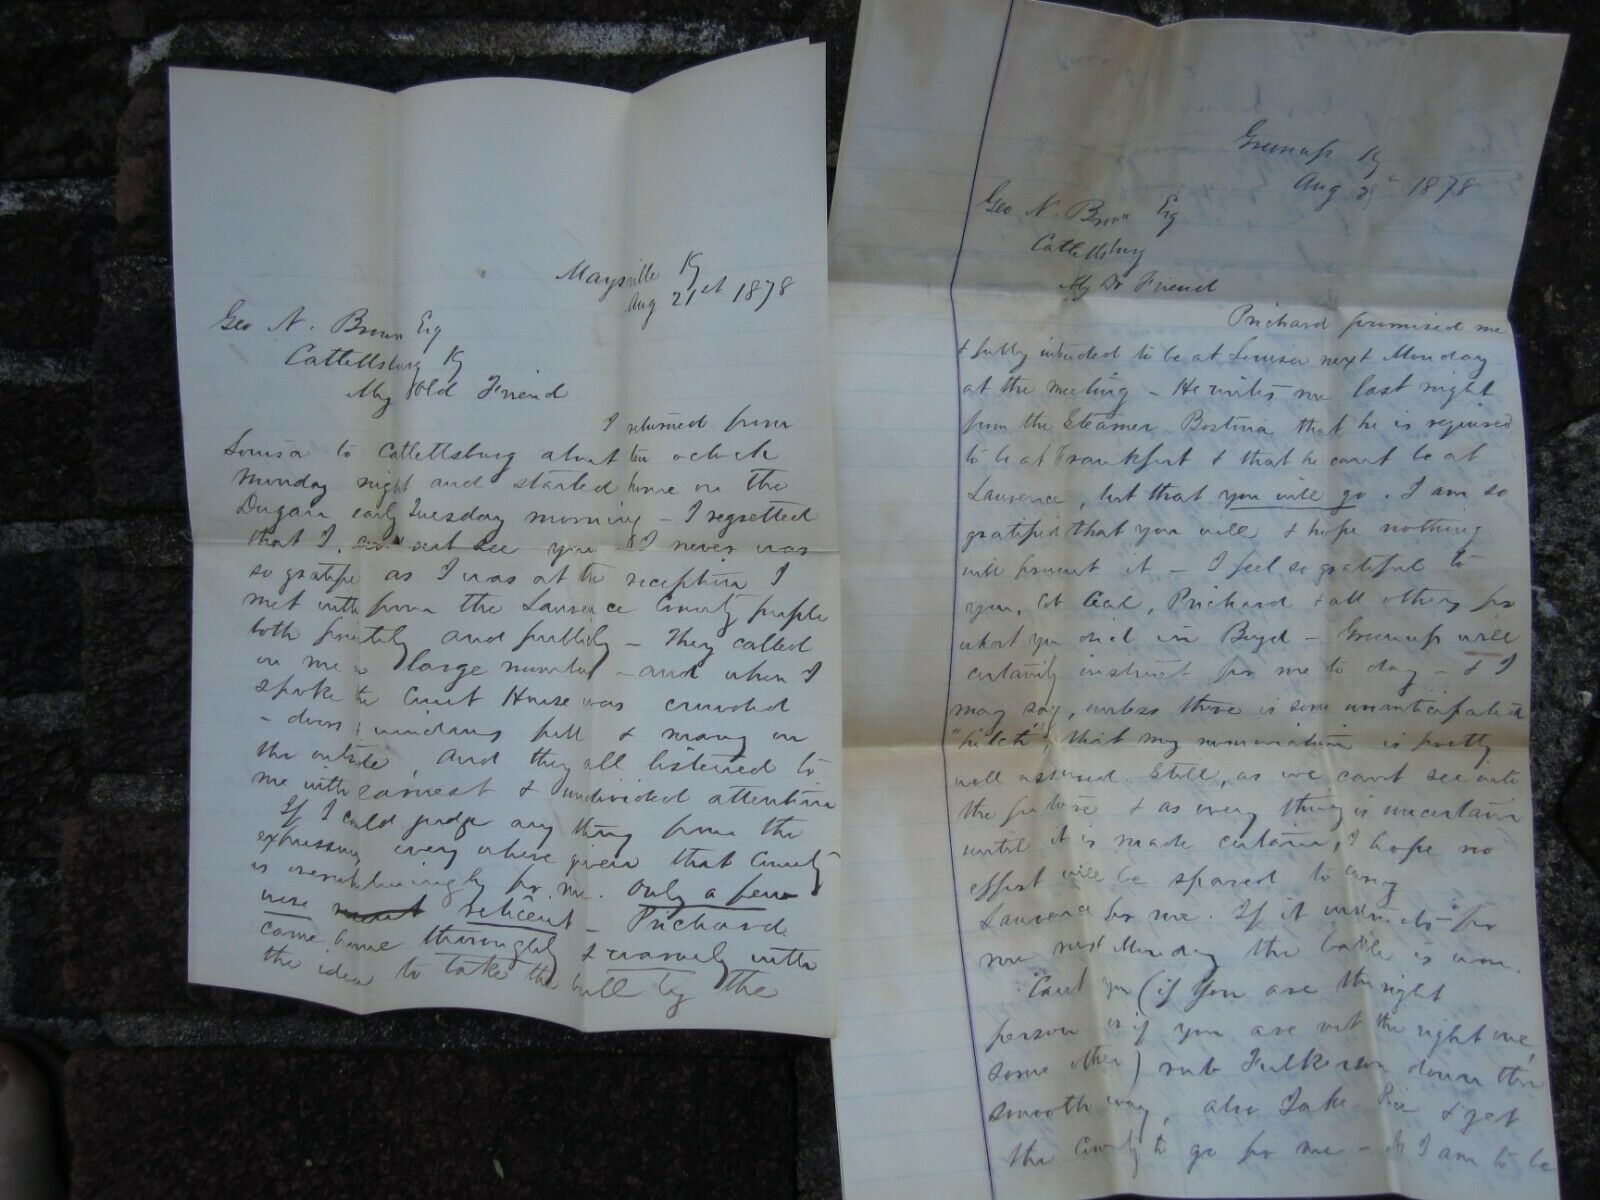 Maysville Ky
Aug 21st 1878
Geo N. Brown Esq
Catlettsburg Ky
My Old Friend
I returned from
Louisa to Catlettsburg about ten oclock
Monday night and started home on the
Dugan early Tuesday morning - I regretted
that I not see you - I never was
so as I was at the reception I
met with from the Laurence County people
both privately and publicly - They called
on me in large numbers - and when I
spoke the Court House was crowded
- doors, windows full & many on
the outside, and they all listened to
me with earnest & undivided attention
If I could judge any thing from the
expression every where given that County
is overwhelmingly for me. Only a few
were reticent - Prichard
came home thoroughly & with
the idea to take the bull by the
Greenup Ky
Aug 1878
Geo N. Brown Esq
Catlettsburg
My Dr Friend
Prichard promised me
& fully intended to be at Louisa next Monday
at the meeting - He writes me last night
from the Steamer Bostona that he is required
to be at Frankfort & that he cant be at
Laurence, but that you will go. I am so
gratified that you will & hope nothing
will prevent it - I feel so grateful to
you, Prichard & all others for
what you did in Boyd - Greenup will
certainly instruct for me to day - & I
may say, unless there is some unanticipated
"hitch", that my nomination is pretty
well assured. Still, as we cant see into
the future & as every thing is uncertain
until it is made certain, I hope no
effort will be spared to carry
Laurence for me. If it instructs for
me next Monday the battle is won.
Cant you (if you are the right
person or if you are not the right one,
some other) rub Fulkerson down the
smooth way, also Jake Rice & get
the County to go for me - I am to be